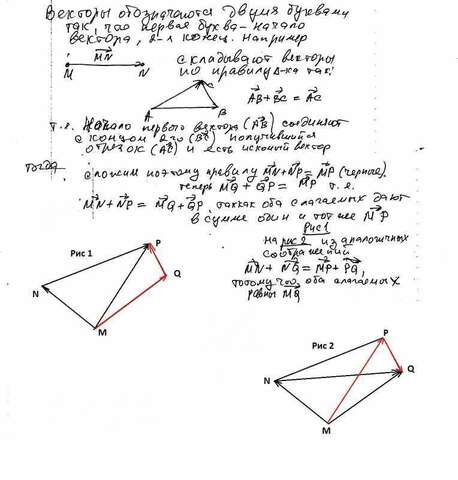 Векторы обозначаются двумя буквами
так, что первая буква - начало
вектора, 2-я конец. Например
MN
M N
складывают векторы
по правилу Δ-ка так:
C
A B
AB + BC = AC
т.е. Начало первого вектора (AB) соединяют
с концом 2го (BC) получившийся
отрезок (AC) и есть искомый вектор
тогда
сложим поэтому правилу MN + NP = MP (черные),
теперь MQ + QP = MP т.е.
MN + NP = MQ + QP, так как оба слагаемых дают
в сумме один и тот же MP
Рис 1
на рис 2 из аналогичных
соображений
MN + NQ = MP + PQ,
потому что оба слагаемых
равны MQ
Рис 1
P
Q
N
M
Рис 2
P
Q
N
M